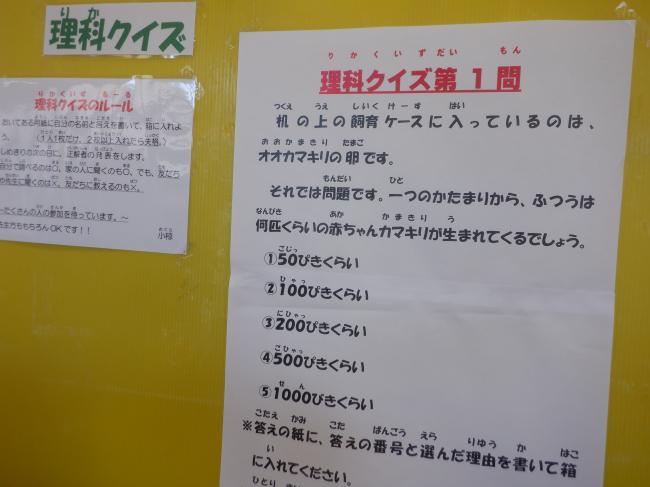 りか
理科クイズ
りかくいず るーる
理科クイズのルール
おいてある用紙に自分の名前と答えを書いて、箱に入れよ
う。(1人1枚だけ、2枚以上入れたら失格。)
しめきりの次の日に、正解者の発表をします。
自分で調べるのは〇、家の人に聞くのも〇、でも、友だち
や先生に聞くのは×、友だちに教えるのも×。
～たくさんの人の参加を待っています。～
先生方ももちろんOKです!!
りかくいずだい もん
理科クイズ第1問
つくえ うえ しいくけーす はい
机の上の飼育ケースに入っているのは、
おおかまきり たまご
オオカマキリの卵です。
もんだい ひと
それでは問題です。一つのかたまりから、ふつうは
なんびき あか かまきり う
何匹くらいの赤ちゃんカマキリが生まれてくるでしょう。
ごじっ
①50ぴきくらい
ひゃっ
②100ぴきくらい
にひゃっ
③200ぴきくらい
ごひゃっ
④500ぴきくらい
せん
⑤1000びきくらい
こたえ かみ こた ばんごう えら りゆう か はこ
※答えの紙に、答えの番号と選んだ理由を書いて箱
い
に入れてください。
ひとり